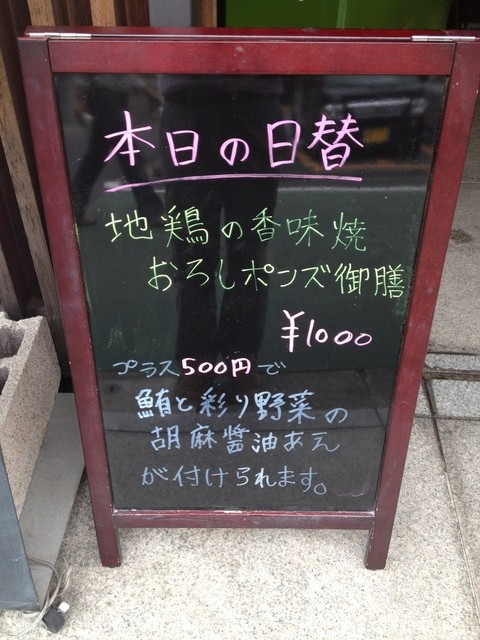 本日の日替
地鶏の香味焼
おろしポンズ御膳
¥1000
プラス500円で
鮪と彩り野菜の
胡麻醤油あえ
が付けられます。